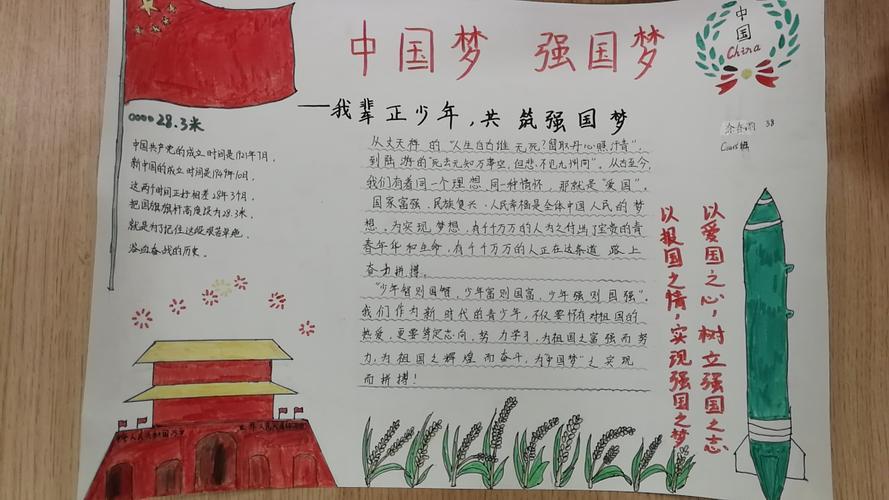 中国梦 强国梦
——我辈正少年,共筑强国梦
中国
China
38
28.3米
中国共产党的成立时间是1921年7月,
新中国的成立时间是1949年10月,
这两个时间正好相差28年3个月,
把国旗旗杆高度设为28.3米,
就是为了记住这段艰苦卓绝,
浴血奋战的历史。
从文天祥的“人生自古谁无死?留取丹心照汗青”,
到陆游的“死去元知万事空,但悲不见九州同”。从古至今,
我们有着同一个理想,同一种情怀,那就是“爱国”。
国家富强、民族复兴、人民幸福是全体中国人民的梦
想。为实现梦想,有千千万万的人为之付出了宝贵的青
春年华和生命,有千千万万的人正在这条道路上
奋力拼搏。
“少年智则国智,少年富则国富,少年强则国强”。
我们作为新时代的青少年,不仅要怀有对祖国的
热爱,更要笃定志向,努力学习,为祖国之富强而努
力,为祖国之辉煌而奋斗,为“中国梦”之实现
而拼搏!
以爱国之心,树立强国之志
以报国之情,实现强国之梦